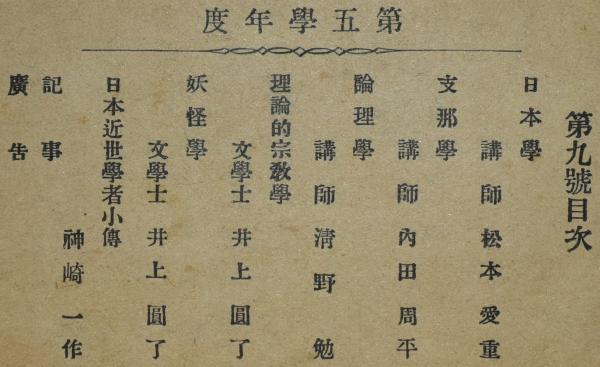 第五學年度
第九號目次
日本學
講師松本愛重
支那學
講師內田周平
論理學
講師淸野勉
理論的宗敎學
文學士井上圓了
妖怪學
文學士井上圓了
日本近世學者小傳
神崎一作
記事
廣告